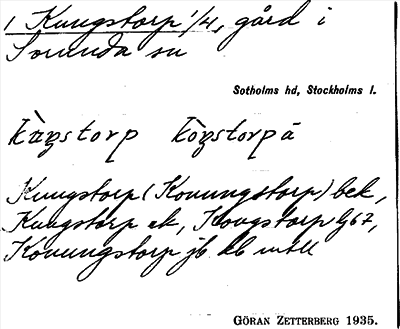 1 Kungstorp 1/4, gård i
Sorunda sn
Sotholms hd, Stockholms l.
Kungstorp (Konungstorp) bek,
Kungstorp ek, Kongstorp Gj 67,
Konungstorp jb. hb mtll
GÖRAN ZETTERBERG 1935.